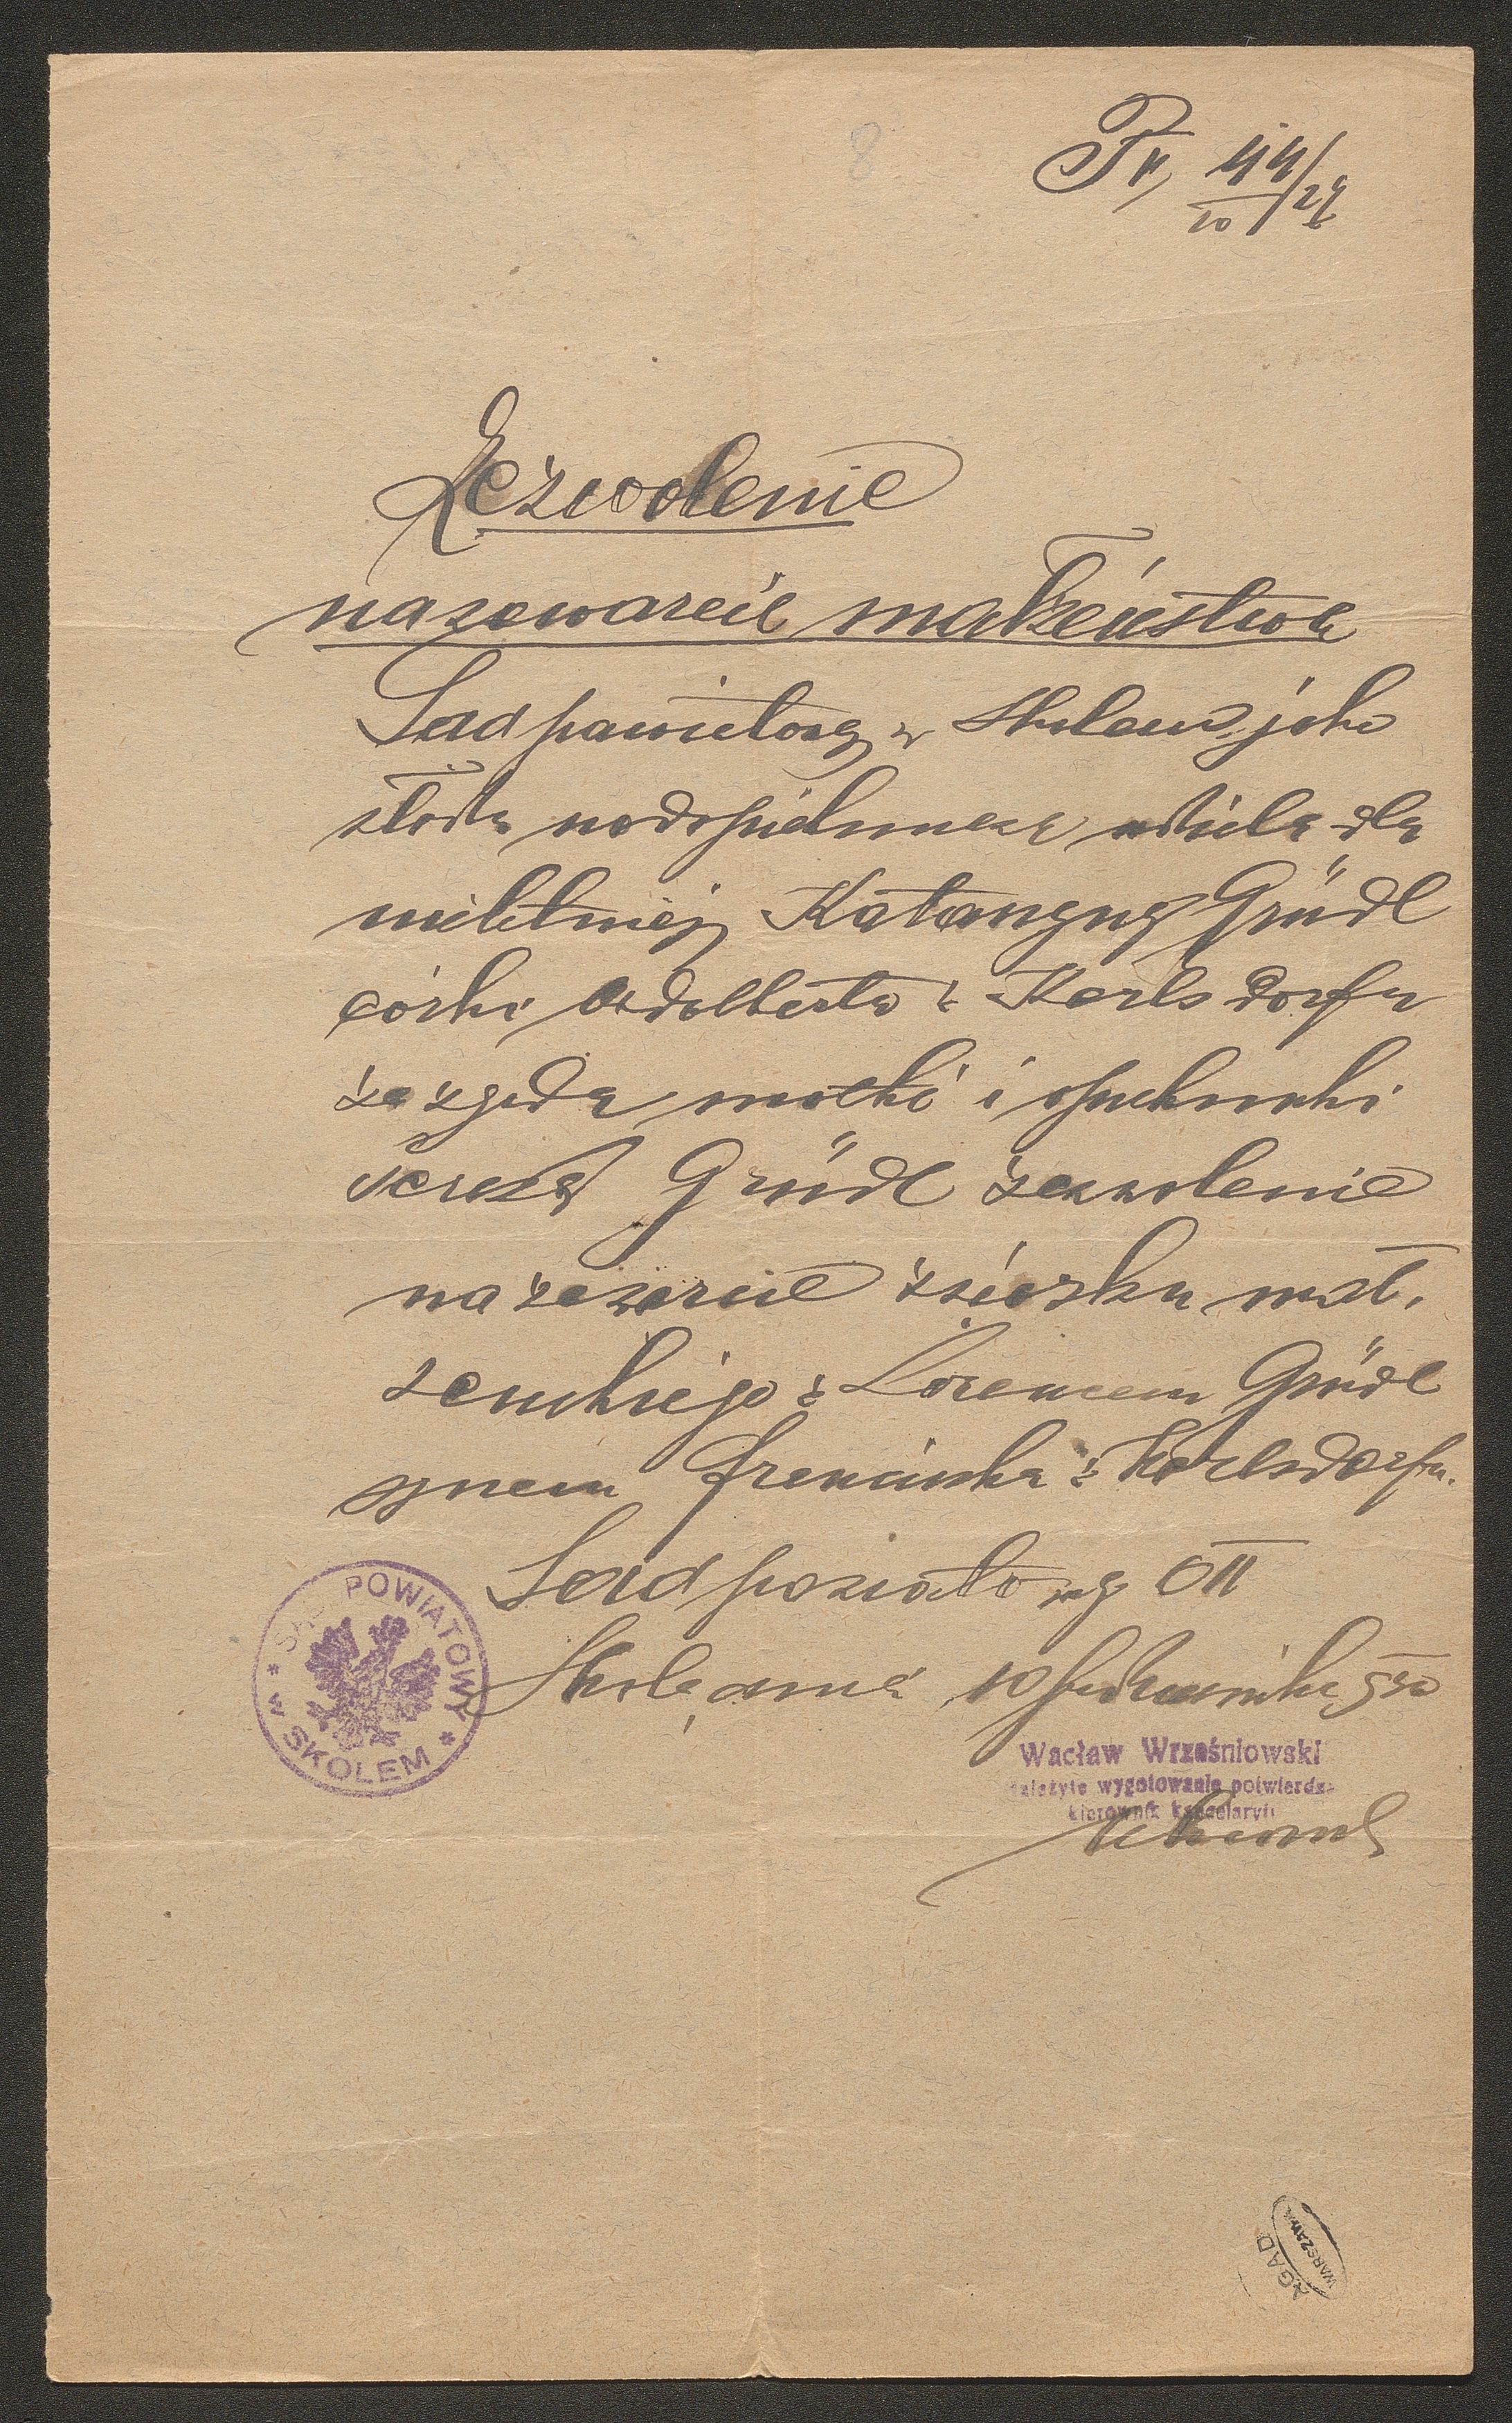 8
Pr, 44/24
10
Zezwolenie
na zawarcie małżeństwa
Sąd powiatowy w Skolem jako
władza nadopiekuńcza udziela dla
nieletniej Katarzyny Gründl
córki Adalberta z Karlsdorfu
za zgodą matki i opiekunki
Terezy Gründl zezwolenie
na zawarcie związku mał,
żeńskiego z Lorencem Gründl
synem Franciszka z Karlsdorfu.
Sąd powiatowy O II
Skole, dnia 10 października
SĄD POWIATOWY * w SKOLEM *
Wacław Wrześniowski
należyte wygotowanie potwierdza
kierownik kancelaryi:
AGAD
WARSZAWA